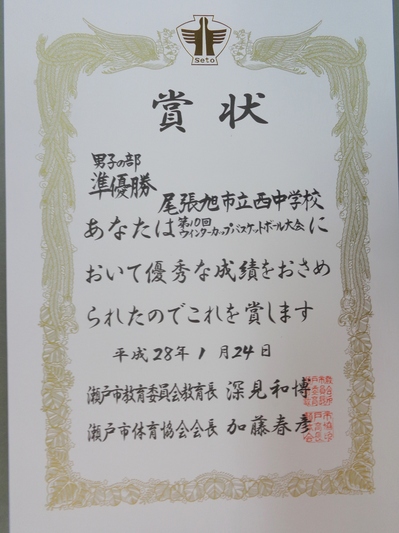 Seto
賞状
男子の部
準優勝
尾張旭市立西中学校
あなたは第10回ウインターカップバスケットボール大会に
おいて優秀な成績をおさめ
られたのでこれを賞します
平成28年1月24日
瀬戸市教育委員会教育長 深見和博
瀬戸市体育協会会長 加藤春彦